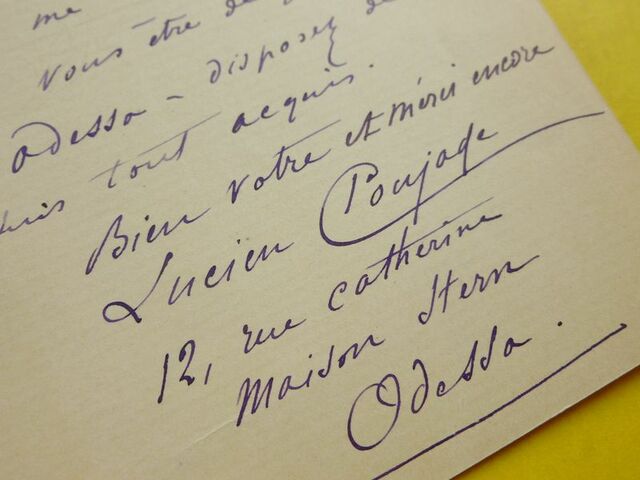 me
vous être de
Odessa - disposez de
suis tout acquis.
Bien votre et merci encore
Lucien Poujade
12, rue Catherine
Maison Stern
Odessa.